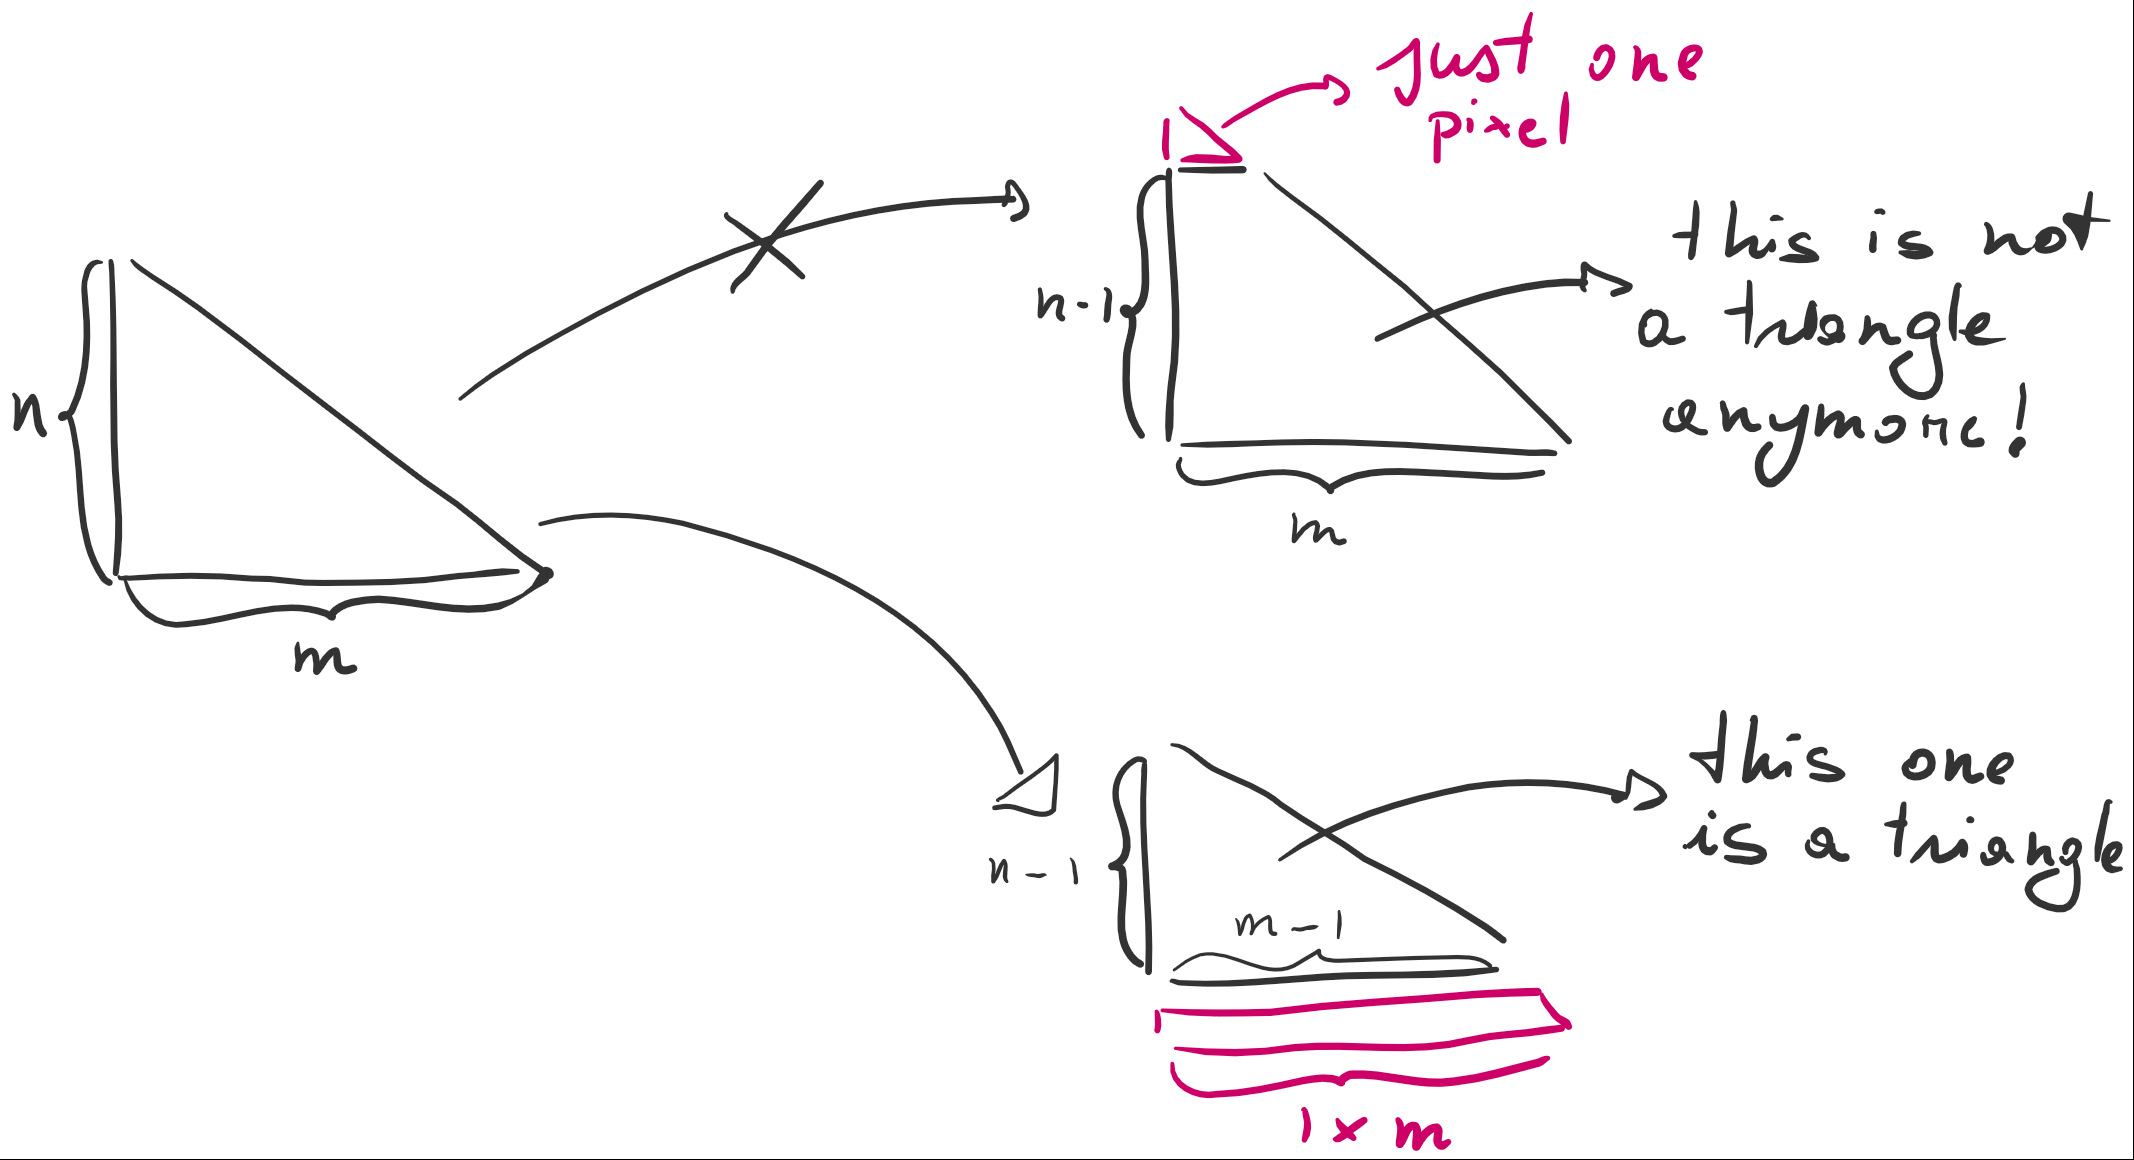 just one
pixel
1
n-1
this is not
a triangle
anymore!
m
n
m
this one
is a triangle
n-1
m-1
1
1 x m